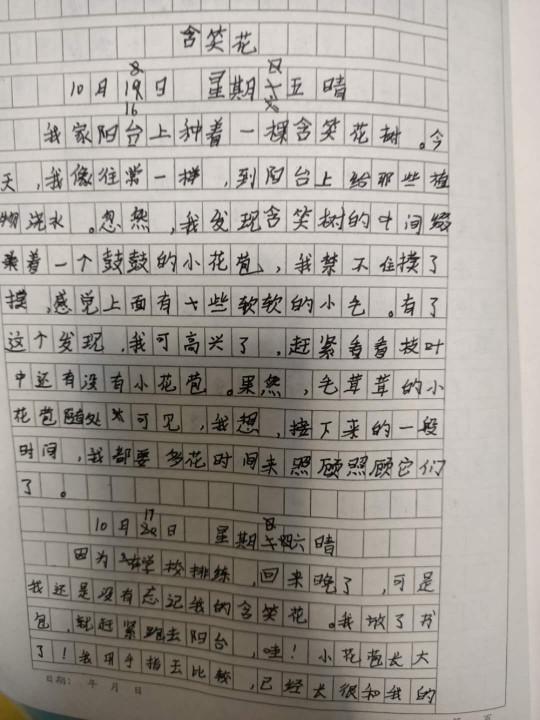 含笑花
10月16日 星期五晴
我家阳台上种着一棵含笑花树。今
天,我像往常一样,到阳台上给那些植
物浇水。忽然,我发现含笑树的叶间缀
着一个鼓鼓的小花苞,我禁不住摸了
摸,感觉上面有一些软软的小毛。有了
这个发现,我可高兴了,赶紧看看枝叶
中还有没有小花苞。果然,毛茸茸的小
花苞随处可见,我想,接下来的一段
时间,我都要多花时间来照顾照顾它们
了。
10月17日 星期六晴
因为学校排练,回来晚了,可是
我还是没有忘记我的含笑花。我放了书
包,就赶紧跑去阳台,哇!小花苞长大
了!我用手指去比较,已经大很和我的
日期: 年 月 日